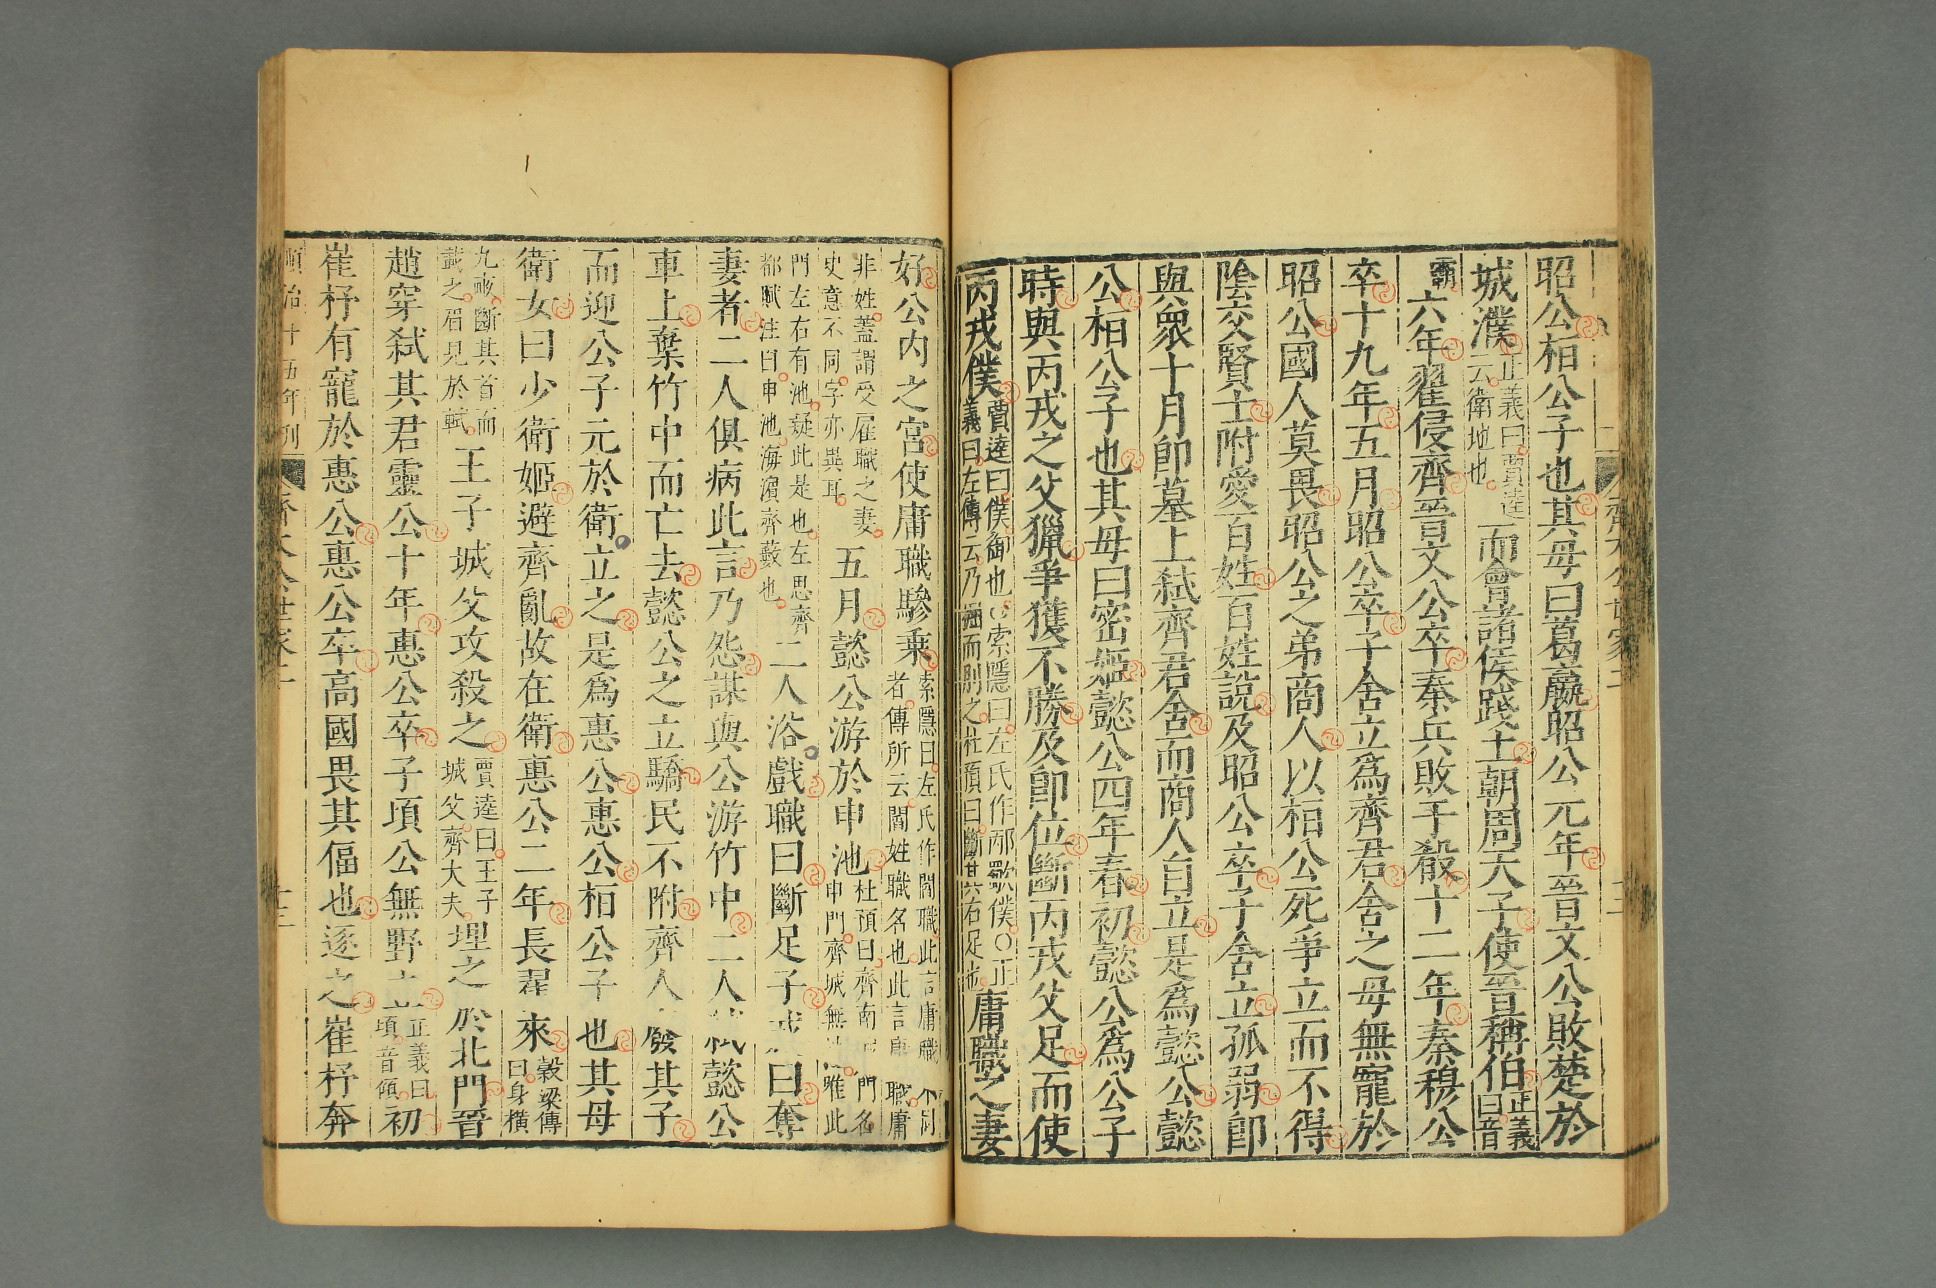 昭公桓公子也其母曰葛嬴昭公元年晉文公敗楚於
城濮正義曰賈逵云衛地也而會諸侯踐土朝周天子使晉稱伯正義曰音
霸六年翟侵齊晉文公卒秦兵敗于殽十二年秦穆公
卒十九年五月昭公卒子舍立爲齊君舍之母無寵於
昭公國人莫畏昭公之弟商人以桓公死爭立而不得
陰交賢士附愛百姓百姓說及昭公卒子舍立孤弱卽
與衆十月卽墓上弒齊君舍而商人自立是爲懿公懿
公桓公子也其母曰密姬懿公四年春初懿公爲公子
時與丙戎之父獵爭獲不勝及卽位斷丙戎父足而使
丙戎僕賈逵曰僕御也○索隱曰左氏作邴歜僕○正義曰左傳云乃掘而刖之杜預曰斷其尸右足也庸職之妻
好公內之宮使庸職驂乘索隱曰左氏作閻職此言庸職不同者傳所云閻姓職名也此言庸職庸
非姓蓋謂受雇職之妻史意不同字亦異耳五月懿公游於申池杜預曰齊南城門名申門齊城無池唯此
門左右有池疑此是也左思齊都賦注曰申池海濱齊藪也二人浴戲職曰斷足子戎曰奪
妻者二人俱病此言乃怨謀與公游竹中二人弒懿公
車上棄竹中而亡去懿公之立驕民不附齊人廢其子
而迎公子元於衛立之是爲惠公惠公桓公子也其母
衛女曰少衛姬避齊亂故在衛惠公二年長翟來穀梁傳曰身橫
九畝斷其首而載之眉見於軾王子城父攻殺之賈逵曰王子城父齊大夫埋之於北門晉
趙穿弒其君靈公十年惠公卒子頃公無野立正義曰頃音傾初
崔杼有寵於惠公惠公卒高國畏其偪也逐之崔杼奔
順治十五年刊 齊太公世家二 十三